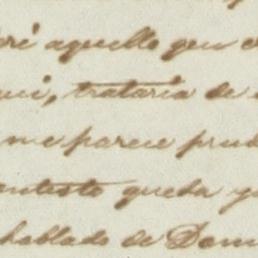 aquello que
, trataria de
me parece prud
contesto queda
hablado de Dom